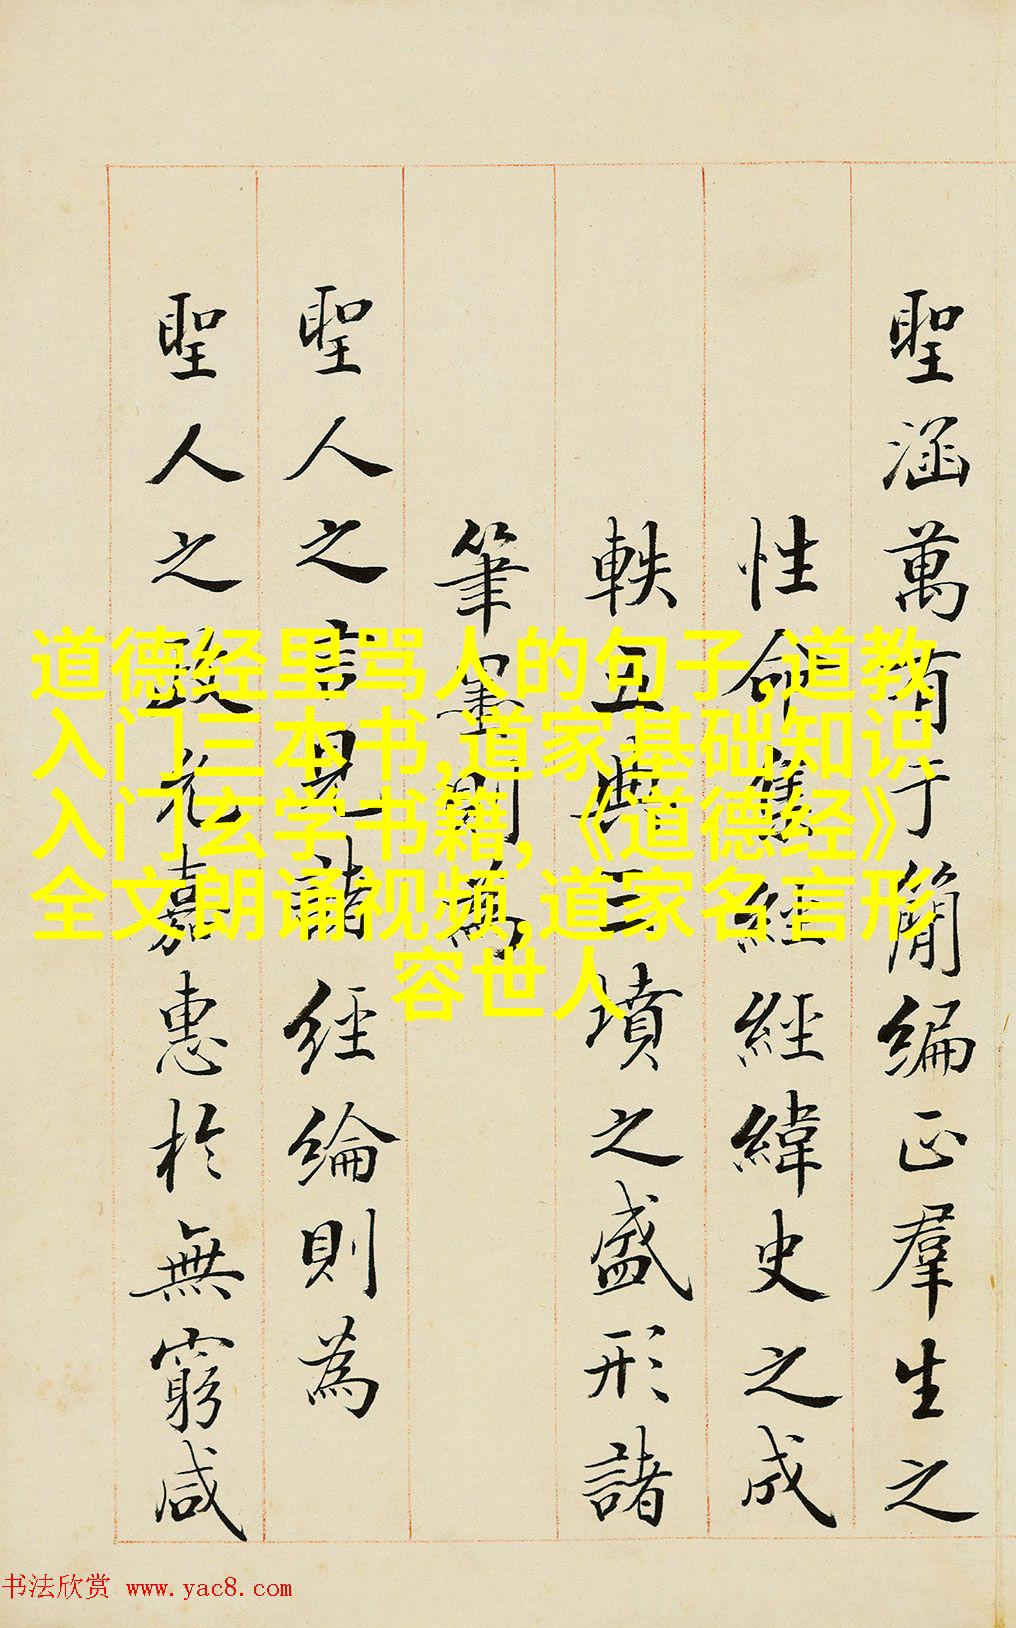 聖涵萬有于簡編正羣生之
性命經經緯史之成
軼五典三墳之盛形諸
筆墨則為
聖人之言見諸經綸則為
聖人之政嘉惠於無窮咸
道德经里骂人的句子,道教
入门三本书,道家基础知识,
入门玄学书籍,《道德经》
全文朗诵视频,道家名言形
容世人
书法欣赏 www.yac8.com